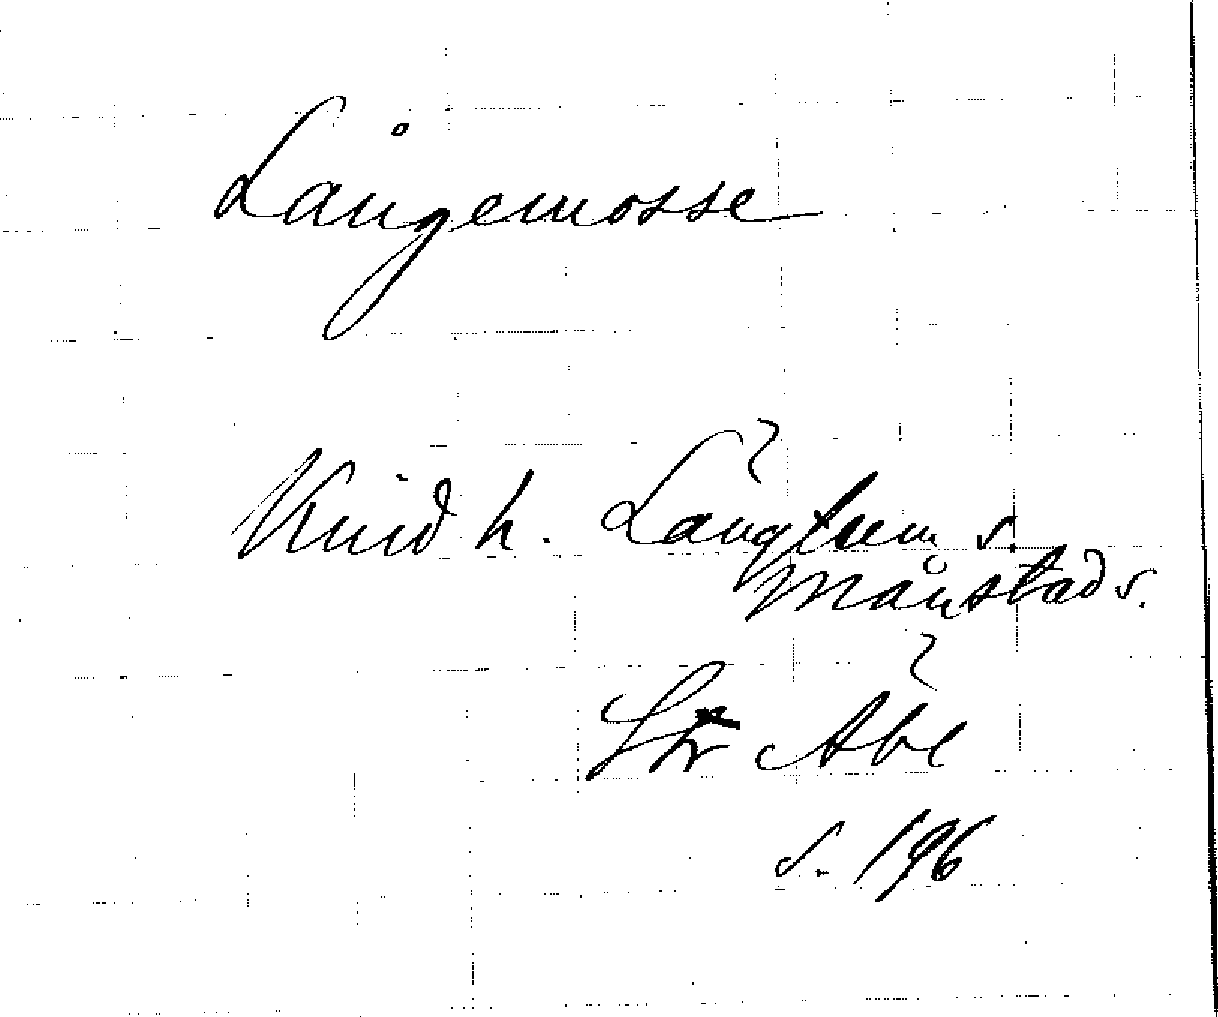 Långemosse
Kind h. Långhem s.
Månstad s.
Åbe
s. 196